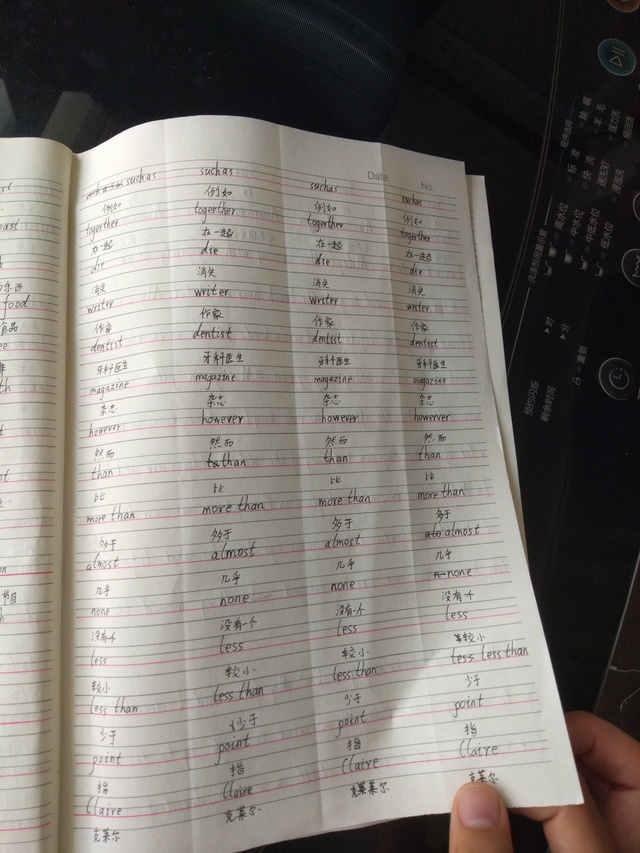 Date. No.
such as such as such as such as
例如 例如 例如 例如
togerther togerther togerther togerther
在一起 在一起 在一起 在一起
die die die die
消失 消失 消失 消失
writer writer writer writer
作家 作家 作家 作家
dentist dentist dentist dentist
牙科医生 牙科医生 牙科医生 牙科医生
magazine magazine magazine magazine
杂志 杂志 杂志 杂志
however however however howerver
然而 然而 然而 然而
than than than than
比 比 比 比
more than more than more than more than
多于 多于 多于 多于
almost almost almost almost
几乎 几乎 几乎 几乎
none none none none
没有一个 没有一个 没有一个 没有一个
less less less less
较小 较小 较小 较小
less than less than less than less than
少于 少于 少于 少于
point point point point
指 指 指 指
Claire Claire Claire Claire
克莱尔 克莱尔 克莱尔 克莱尔
food
节目
高水位
中水位
中低水位
低水位
标准
快洗
羊毛
时
分
童锁
预约闪烁
剩余时间